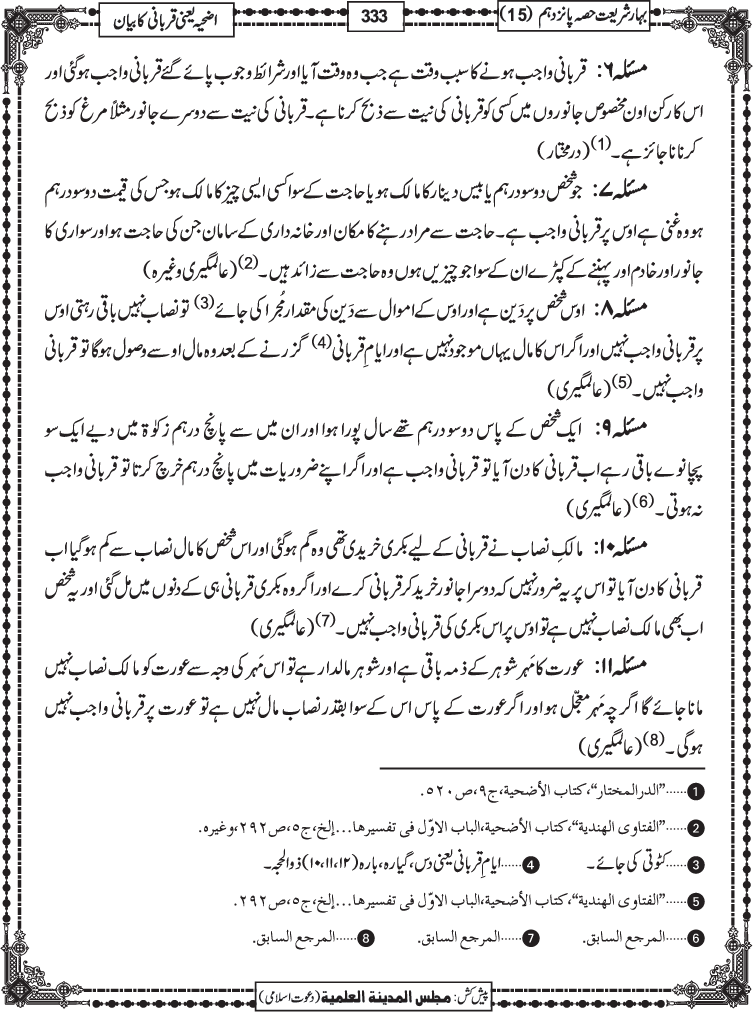 بہارِ شریعت حصہ پانزدہم (15)
333
اضحیہ یعنی قربانی کا بیان
مسئلہ ۶: قربانی واجب ہونے کا سبب وقت ہے جب وہ وقت آیا اور شرائط وجوب پائے گئے قربانی واجب ہوگئی اور
اس کا رکن اون مخصوص جانوروں میں کسی کو قربانی کی نیت سے ذبح کرنا ہے۔ قربانی کی نیت سے دوسرے جانور مثلاً مرغ کو ذبح
کرنا ناجائز ہے۔(1) (درمختار)
مسئلہ ۷: جو شخص دوسو درہم یا بیس دینار کا مالک ہو یا حاجت کے سوا کسی ایسی چیز کا مالک ہو جس کی قیمت دوسو درہم
ہو وہ غنی ہے اوس پر قربانی واجب ہے۔ حاجت سے مراد رہنے کا مکان اور خانہ داری کے سامان جن کی حاجت ہو اور سواری کا
جانور اور خادم اور پہننے کے کپڑے ان کے سوا جو چیزیں ہوں وہ حاجت سے زائد ہیں۔(2) (عالمگیری وغیرہ)
مسئلہ ۸: اوس شخص پر دَین ہے اور اوس کے اموال سے دَین کی مقدار مُجرا کی جائے(3) تو نصاب نہیں باقی رہتی اوس
پر قربانی واجب نہیں اور اگر اس کا مال یہاں موجود نہیں ہے اور ایامِ قربانی(4) گزرنے کے بعد وہ مال اوسے وصول ہوگا تو قربانی
واجب نہیں۔(5) (عالمگیری)
مسئلہ ۹: ایک شخص کے پاس دوسو درہم تھے سال پورا ہوا اور ان میں سے پانچ درہم زکوٰۃ میں دیے ایک سو
پچانوے باقی رہے اب قربانی کا دن آیا تو قربانی واجب ہے اور اگر اپنے ضروریات میں پانچ درہم خرچ کرتا تو قربانی واجب
نہ ہوتی۔(6) (عالمگیری)
مسئلہ ۱۰: مالکِ نصاب نے قربانی کے لیے بکری خریدی تھی وہ گم ہوگئی اور اس شخص کا مال نصاب سے کم ہوگیا اب
قربانی کا دن آیا تو اس پر یہ ضرور نہیں کہ دوسرا جانور خرید کر قربانی کرے اور اگر وہ بکری قربانی ہی کے دنوں میں مل گئی اور یہ شخص
اب بھی مالک نصاب نہیں ہے تو اوس پر اس بکری کی قربانی واجب نہیں۔(7) (عالمگیری)
مسئلہ ۱۱: عورت کا مَہر شوہر کے ذمہ باقی ہے اور شوہر مالدار ہے تو اس مَہر کی وجہ سے عورت کو مالک نصاب نہیں
مانا جائے گا اگرچہ مَہر معجّل ہو اور اگر عورت کے پاس اس کے سوا بقدرِ نصاب مال نہیں ہے تو عورت پر قربانی واجب نہیں
ہوگی۔(8) (عالمگیری)
1......"الدرالمختار"،کتاب الأضحیۃ،ج۹،ص۵۲۰.
2......"الفتاوی الھندیۃ"،کتاب الأضحیۃ،الباب الاوّل فی تفسیرھا...إلخ،ج۵،ص۲۹۲،وغیرہ.
3......کٹوتی کی جائے۔ 4......ایامِ قربانی یعنی دس،گیارہ،بارہ (۱۰،۱۱،۱۲) ذوالحجہ۔
5......"الفتاوی الھندیۃ"،کتاب الأضحیۃ،الباب الاوّل فی تفسیرھا...إلخ،ج۵،ص۲۹۲.
6......المرجع السابق. 7......المرجع السابق. 8......المرجع السابق.
پیش کش: مجلس المدینۃ العلمیۃ (دعوت اسلامی)